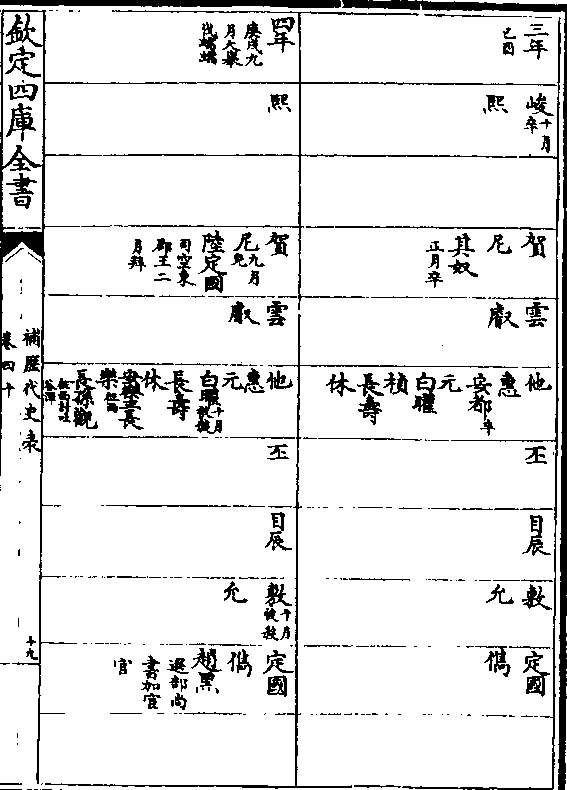 三年
己酉
峻十月卒
熙
賀
尼
其奴
正月卒
雲
叡
他
惠
安都卒
元
白曜
楨
長壽
休
丕
目辰
敷
允
定國
儁
四年
庚戌九
月大舉
伐蠕蠕
熙
賀
尼九月免
陸定國
司空東
郡王二
月拜
雲
叡
他
惠
元
白曜十月被殺
長壽
休
安樂王長
樂征西
長孫觀
征西討吐
谷渾
丕
目辰
敷十月被殺
允
定國
儁
趙黑
選部尚
書加宦
官
欽定四庫全書
補歷代史表
卷四十
十九